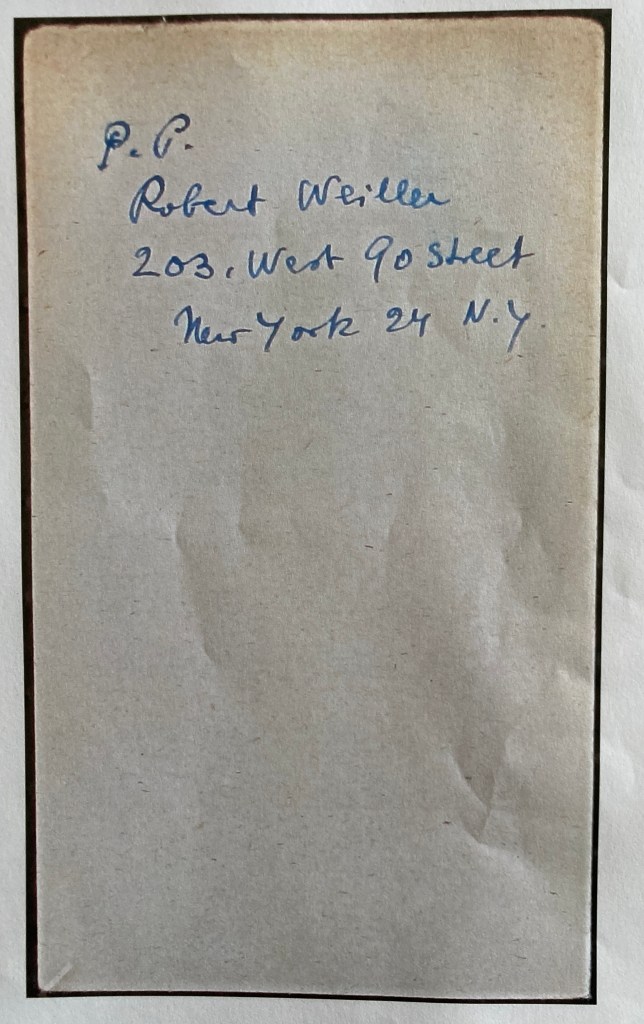 P.P.
Robert Weiller
203, West 90 Street
New York 24 N.Y.